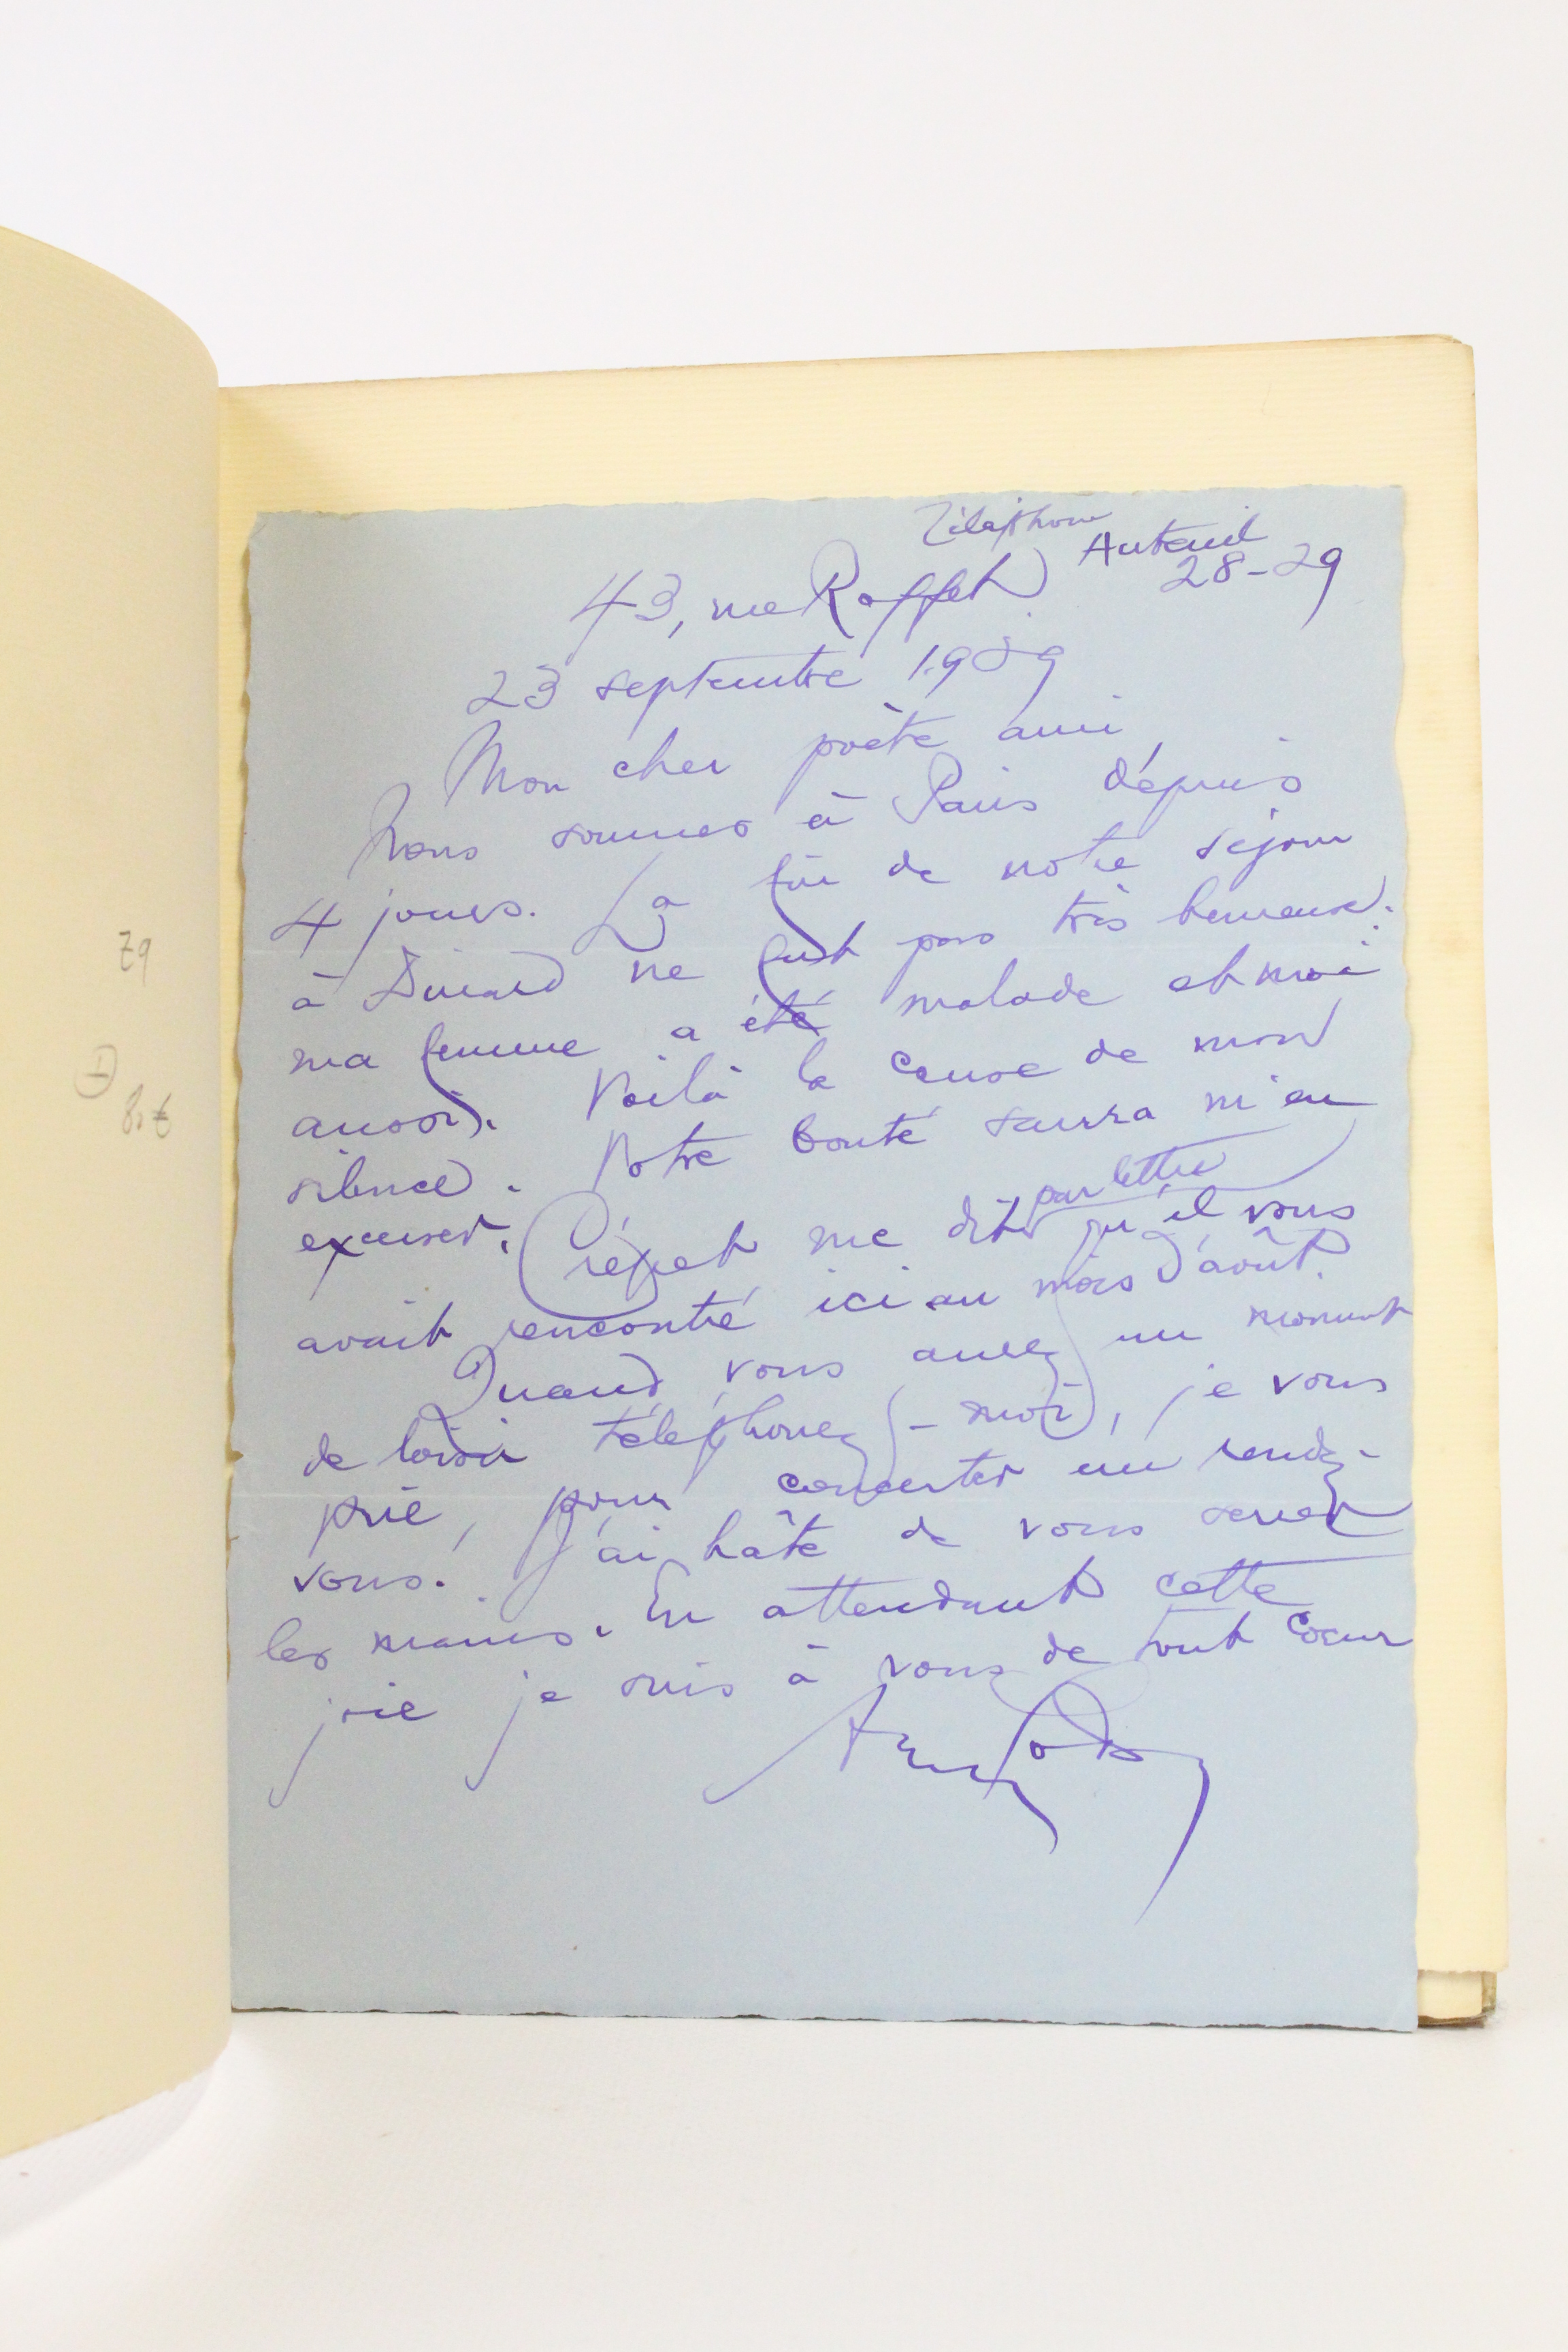 79
1
80€
Téléphone
Auteuil
28-29
43, rue Raffet
23 septembre 19 9
Mon cher poète ami
Nous sommes à Paris dépuis
4 jours. La fin de notre séjour
à Dinard ne fut pas très heureuse:
ma femme a été malade et moi
aussi. Voilà la cause de mon
silence. Votre bonté saura m'en
excuser. Crépet me dit par lettre qu'il vous
avait rencontré ici au mois d'août.
Quand vous aurez un moment
de loisir téléphonez-moi, je vous
prie, pour concerter un rendez-
vous. J'ai hâte de vous serrer
les mains. En attendant cette
joie je suis à vous de tout coeur